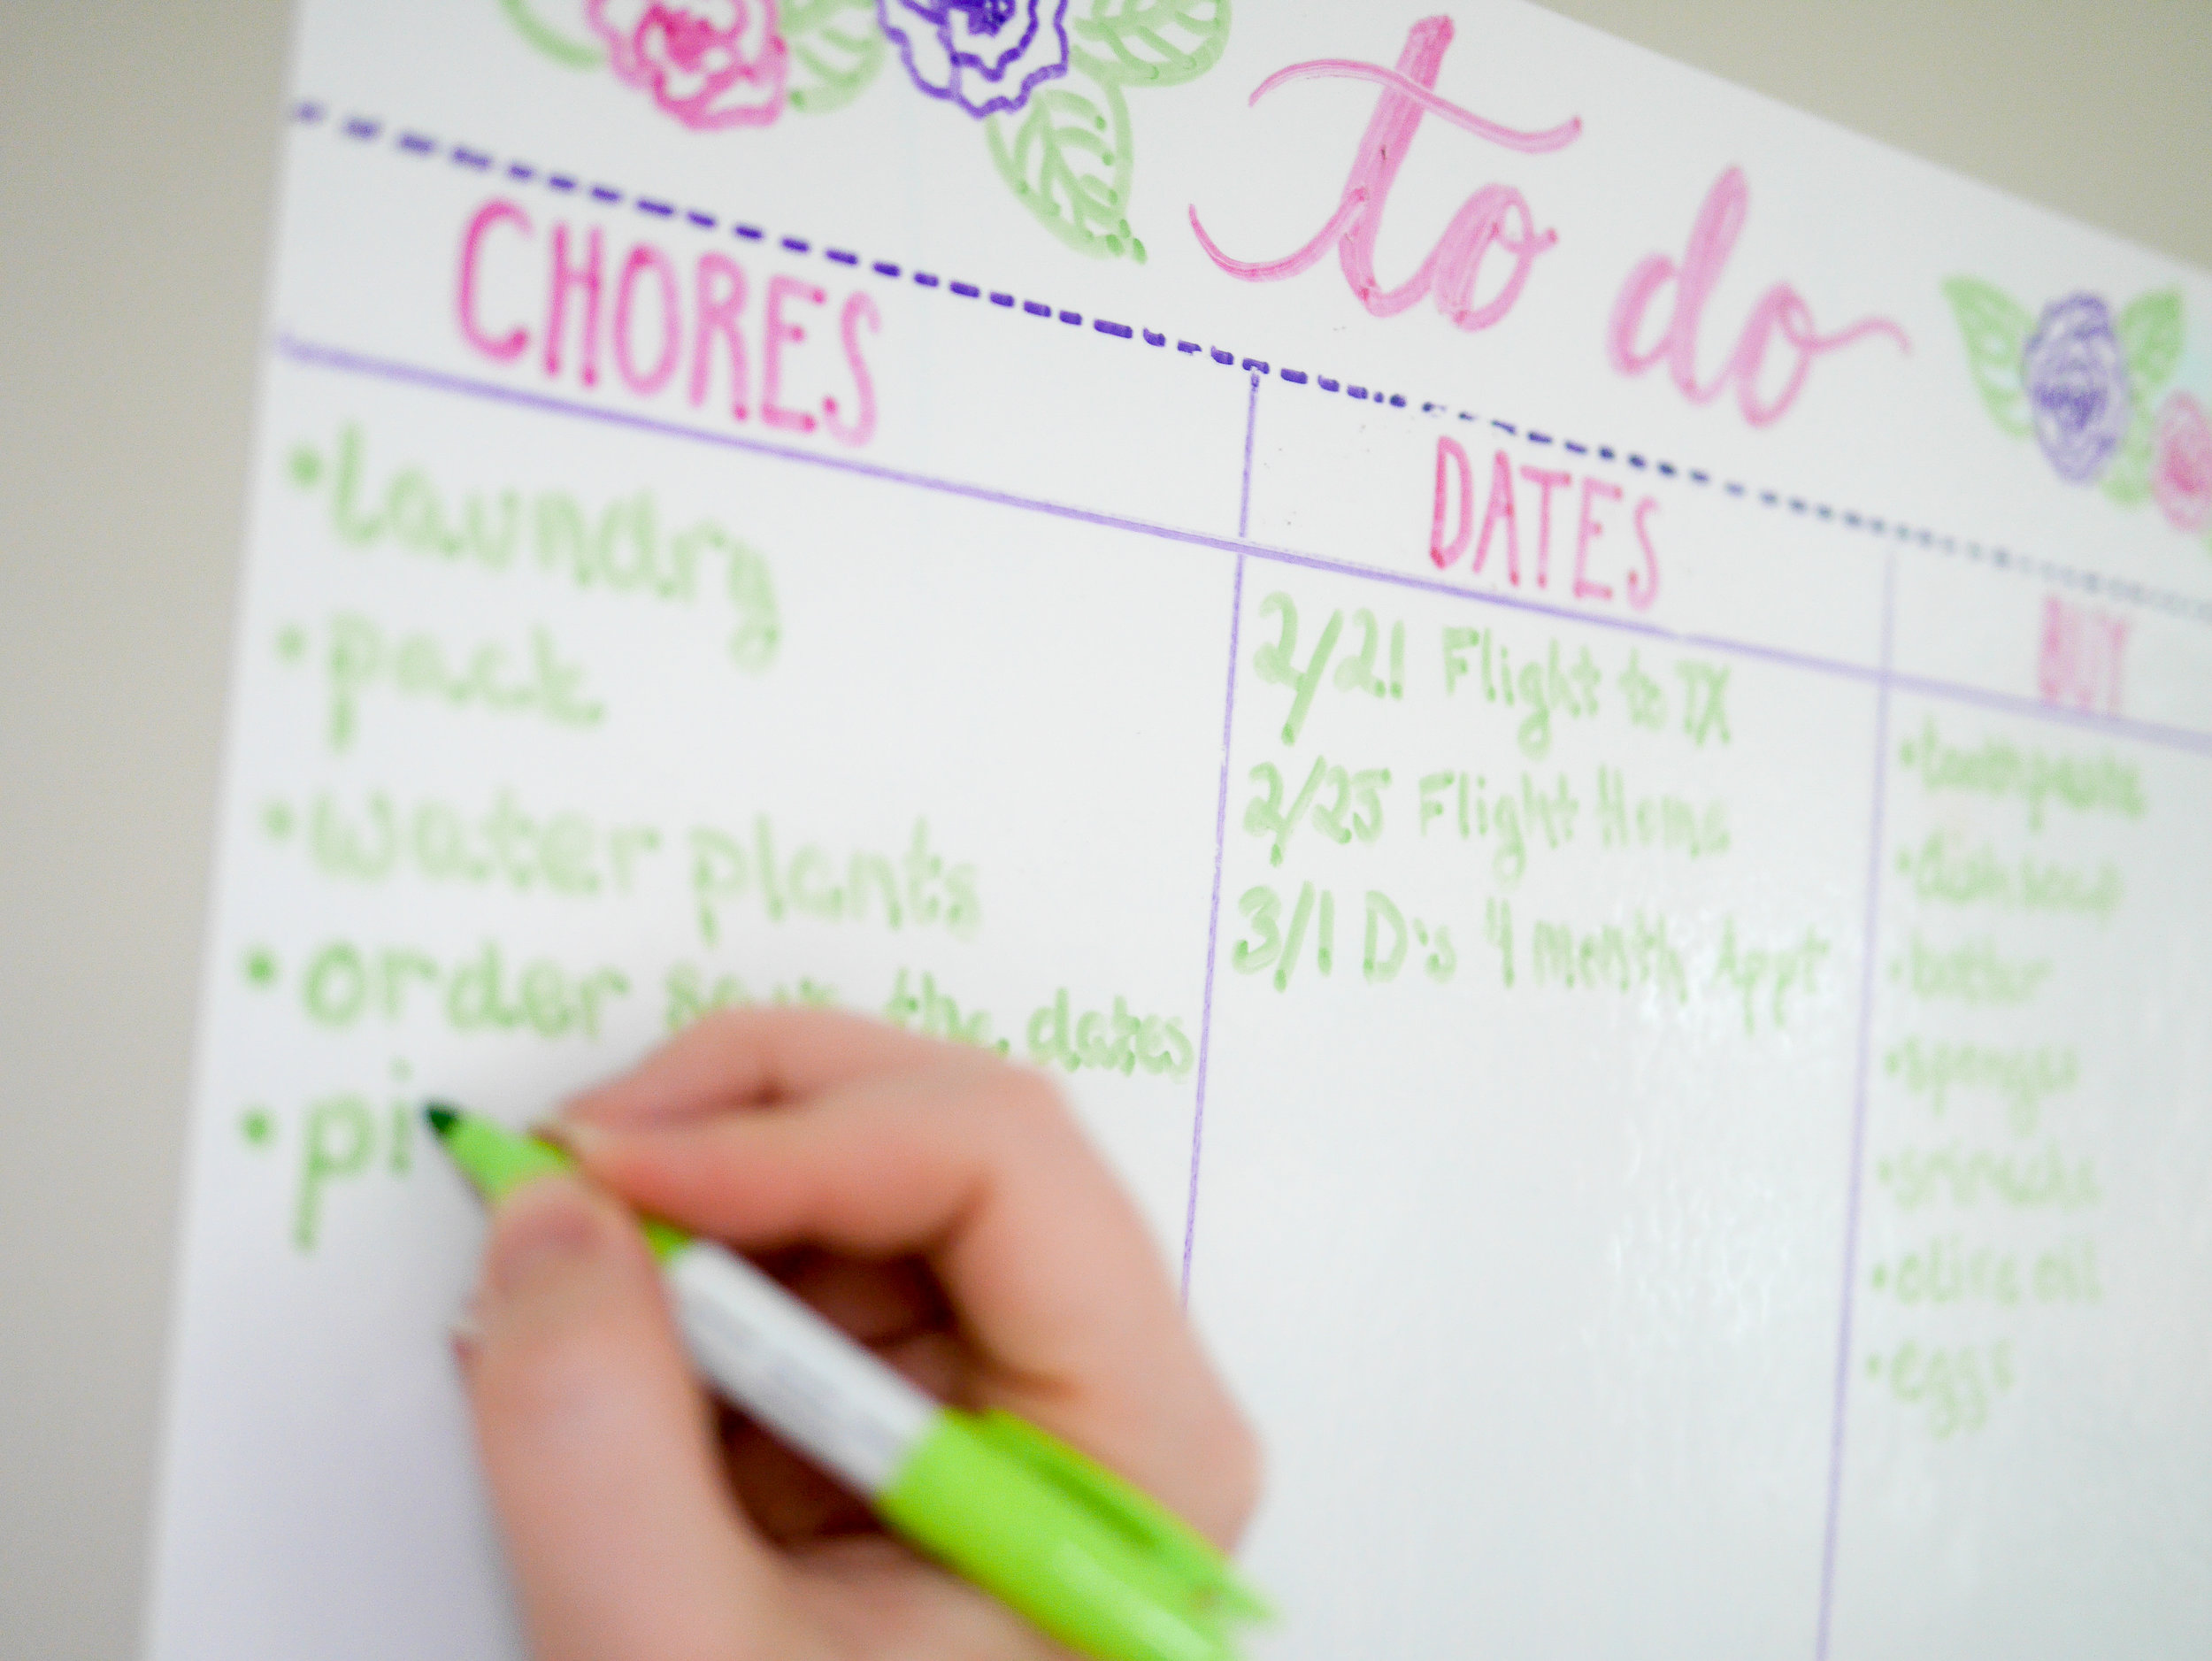 to do
CHORES
• laundry
• pack
• water plants
• order save the dates
• pi
DATES
2/21 Flight to TX
2/25 Flight Home
3/1 D's 4 month Appt
BUY
• toothpaste
• dish soap
• butter
• sponges
• sriracha
• olive oil
• eggs